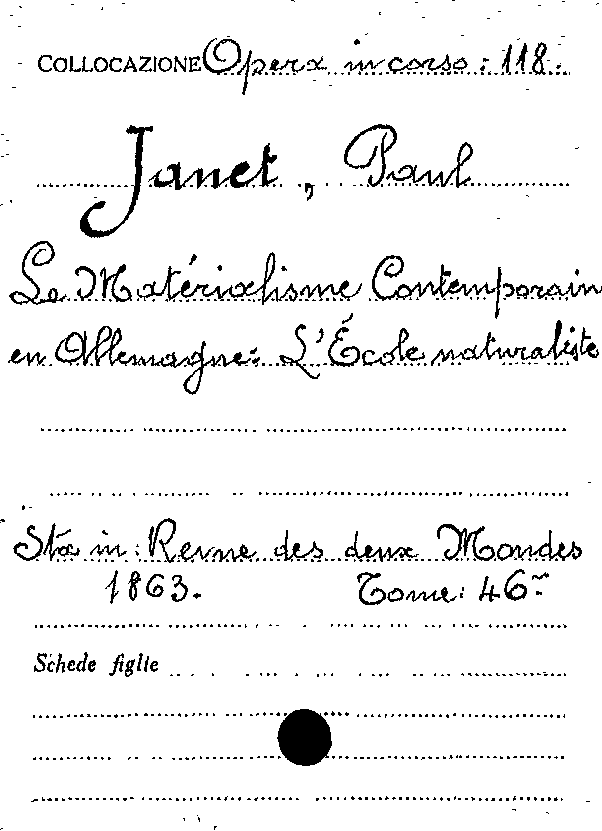 COLLOCAZIONE Opera in corso: 118.
Janet, Paul
Le Matérialisme Contemporain
en Allemagne: L'École naturaliste
Sta in: Revue des deux Mondes
1863. Tome: 46me
Schede figlie